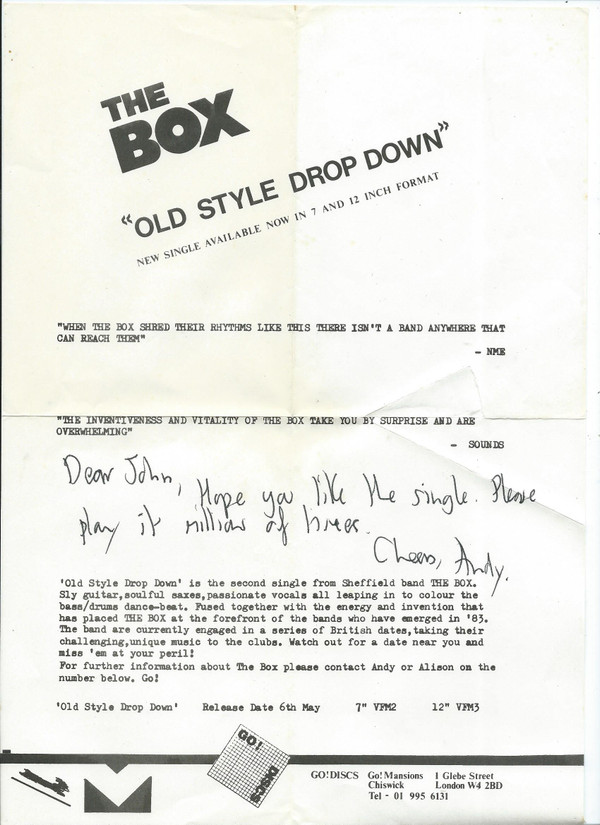 THE
BOX
"OLD STYLE DROP DOWN"
NEW SINGLE AVAILABLE NOW IN 7 AND 12 INCH FORMAT
"WHEN THE BOX SHRED THEIR RHYTHMS LIKE THIS THERE ISN'T A BAND ANYWHERE THAT
CAN REACH THEM"
- NME
"THE INVENTIVENESS AND VITALITY OF THE BOX TAKE YOU BY SURPRISE AND ARE
OVERWHELMING"
- SOUNDS
Dear John, Hope you like the single. Please
play it million of times.
Cheers, Andy.
'Old Style Drop Down' is the second single from Sheffield band THE BOX.
Sly guitar,soulful saxes,passionate vocals all leaping in to colour the
bass/drums dance-beat. Fused together with the energy and invention that
has placed THE BOX at the forefront of the bands who have emerged in '83.
The band are currently engaged in a series of British dates,taking their
challenging,unique music to the clubs. Watch out for a date near you and
miss 'em at your peril!
For further information about The Box please contact Andy or Alison on the
number below. Go!
'Old Style Drop Down' Release Date 6th May 7" VFM2 12" VFM3
GO!
DISCS
GO! DISCS Go! Mansions 1 Glebe Street
Chiswick London W4 2BD
Tel - 01 995 6131